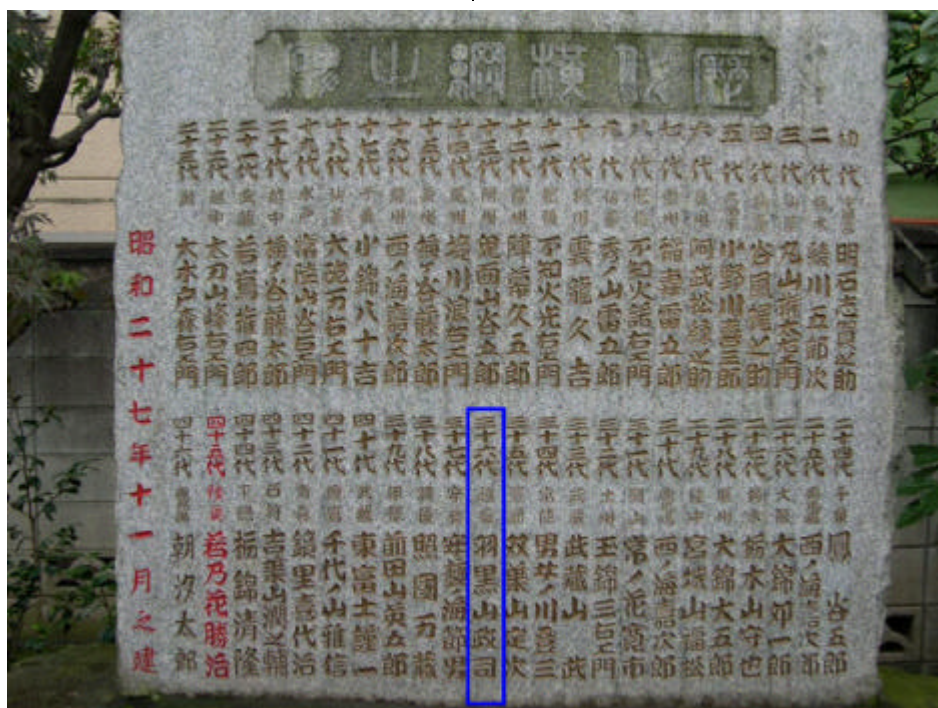 歴代横綱之碑
初代 明石志賀之助
二代 綾川五郎次
三代 丸山権太左エ門
四代 谷風梶之助
五代 小野川喜三郎
六代 阿武松緑之助
七代 稲妻雷五郎
八代 不知火諾右エ門
九代 秀ノ山雷五郎
十代 雲龍久吉
十一代 不知火光右エ門
十二代 陣幕久五郎
十三代 鬼面山谷五郎
十四代 境川浪右エ門
十五代 梅ノ谷藤太郎
十六代 西ノ海嘉次郎
十七代 小錦八十吉
十八代 仙台 大砲万右エ門
十九代 水戸 常陸山谷右エ門
二十代 越中 梅ノ谷藤太郎
二十一代 若島権四郎
二十二代 越中 太刀山峰右エ門
二十三代 大木戸森右エ門
二十四代 千葉 鳳 谷五郎
二十五代 西ノ海嘉次郎
二十六代 大阪 大錦卯一郎
二十七代 栃木 栃木山守也
二十八代 大錦大五郎
二十九代 宮城山福松
三十代 西ノ海嘉次郎
三十一代 岡山 常ノ花寛市
三十二代 玉錦三右エ門
三十三代 武蔵山 武
三十四代 男女ノ川登三
三十五代 双葉山定次
三十六代 羽黒山政司
三十七代 安芸ノ海節男
三十八代 照國万蔵
三十九代 前田山英五郎
四十代 東富士謹一
四十一代 千代ノ山雅信
四十二代 鏡里喜代治
四十三代 石川 吉葉山潤之輔
四十四代 栃錦清隆
四十五代 若乃花勝治
四十六代 朝汐太郎
昭和二十七年十一月之建